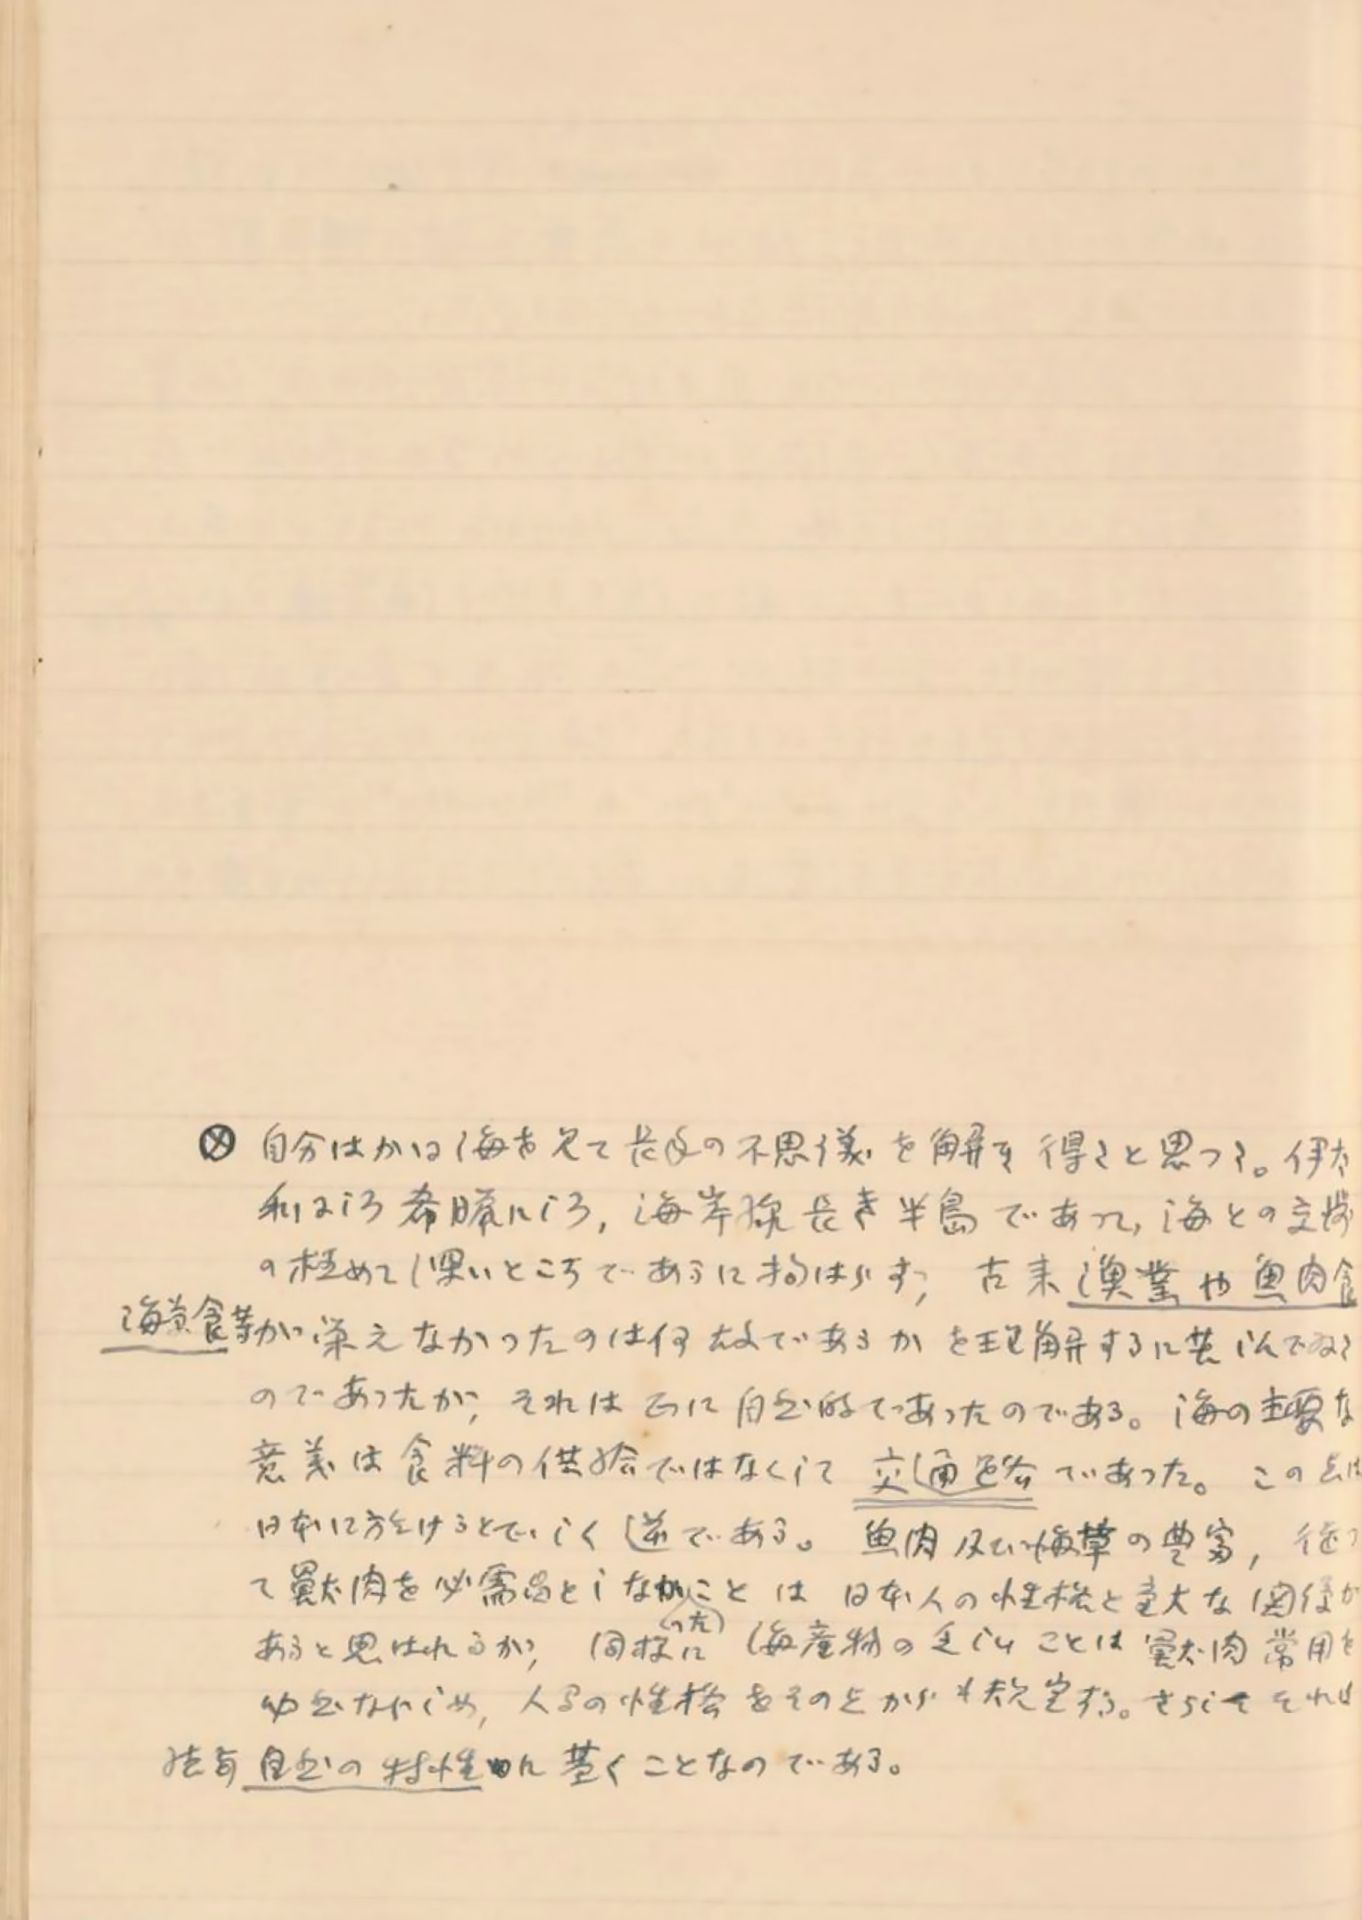 ⊗ 自分はかゝる海を見て長年の不思議を解き得たと思つた。伊太
利にしろ希臘にしろ, 海岸線長き半島であつて, 海との交渉
の極めて深いところであるに拘はらず, 古来漁業や魚肉食
海草食等が栄えなかつたのは何故であるかを理解するに苦しんでゐた
のであつたが, それは正に自然的であつたのである。海の主要な
意義は食料の供給ではなくして交通路であつた。この点は
日本に於けるとでしく逆である。魚肉及び海草の豊富, 従つ
て獣肉を必需品としなかつたことは日本人の性格と重大な関係が
あると思はれるが, 同様に海産物の乏しいことは獣肉常用を
必然ならしめ, 人間の性格をその点からも規定する。さうしてそれは
結局自然の特性に基くことなのである。